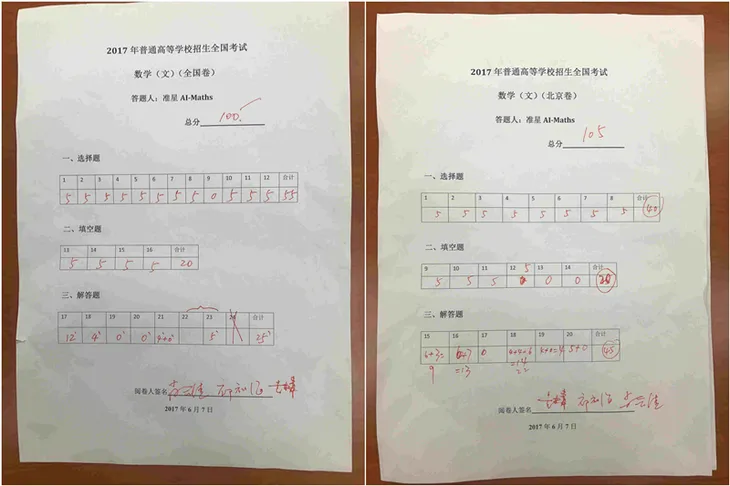 2017 年普通高等学校招生全国考试
数学（文）（全国卷）
答题人：准星 AI-Maths
总分 100.
一、选择题
1 2 3 4 5 6 7 8 9 10 11 12 合计
5 5 5 5 5 5 5 5 0 5 5 5 55
二、填空题
13 14 15 16 合计
5 5 5 5 20
三、解答题
17 18 19 20 21 22 23 24 合计
12 4 0 0 4+0 5 25
阅卷人签名
2017 年 6 月 7 日
2017 年普通高等学校招生全国考试
数学（文）（北京卷）
答题人：准星 AI-Maths
总分 105
一、选择题
1 2 3 4 5 6 7 8 合计
5 5 5 5 5 5 5 5 40
二、填空题
9 10 11 12 13 14 合计
5 5 5 5 0 0 20
三、解答题
15 16 17 18 19 20 合计
6+3= 6+7 0 4+4+6 5+0 45
9 =13 =14
阅卷人签名
2017 年 6 月 7 日